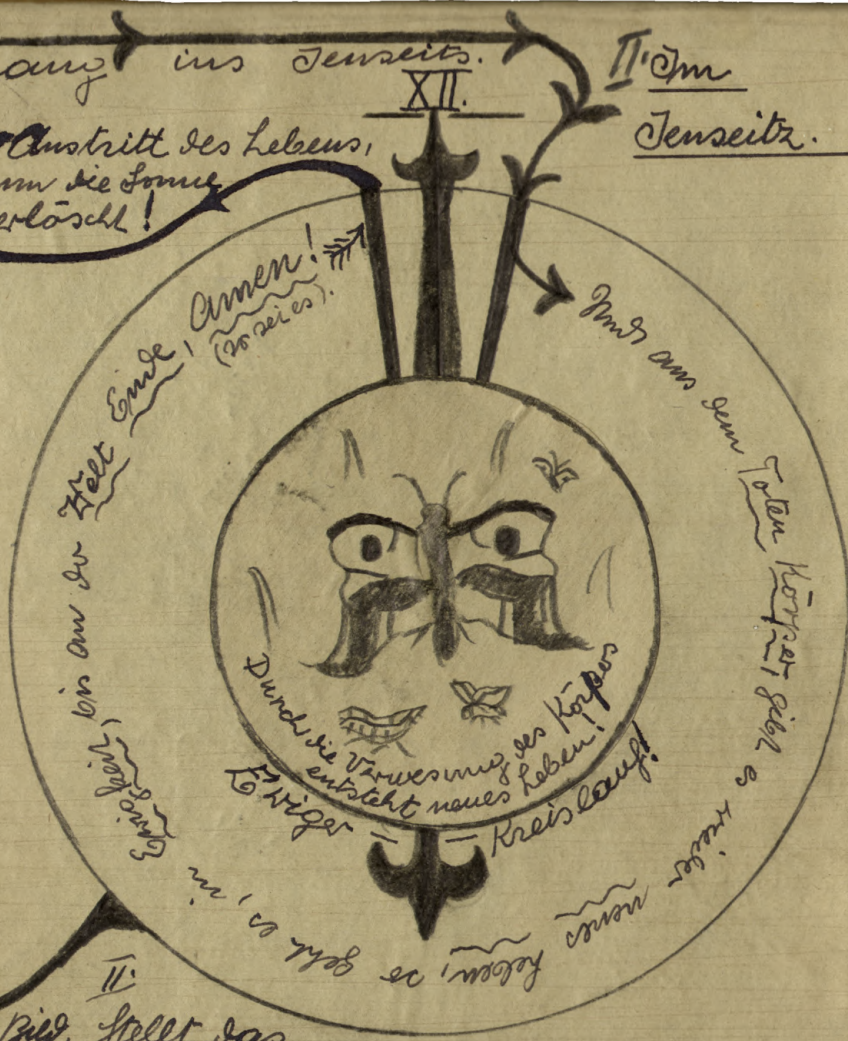 ang ins Jenseits.
XII.
II. Im
Jenseitz.
Austritt des Lebens,
nn die Sonne
erlöscht!
Und aus dem Toten Körper, gibt es wieder neues Leben, so geht es, in Ewigkeit, bis an der Welt Ende, Amen!
(so sei es).
Durch die Verwesung des Körpers
entsteht neues Leben!
Ewiger = = Kreislauf!
II.
Bild. Stellt das